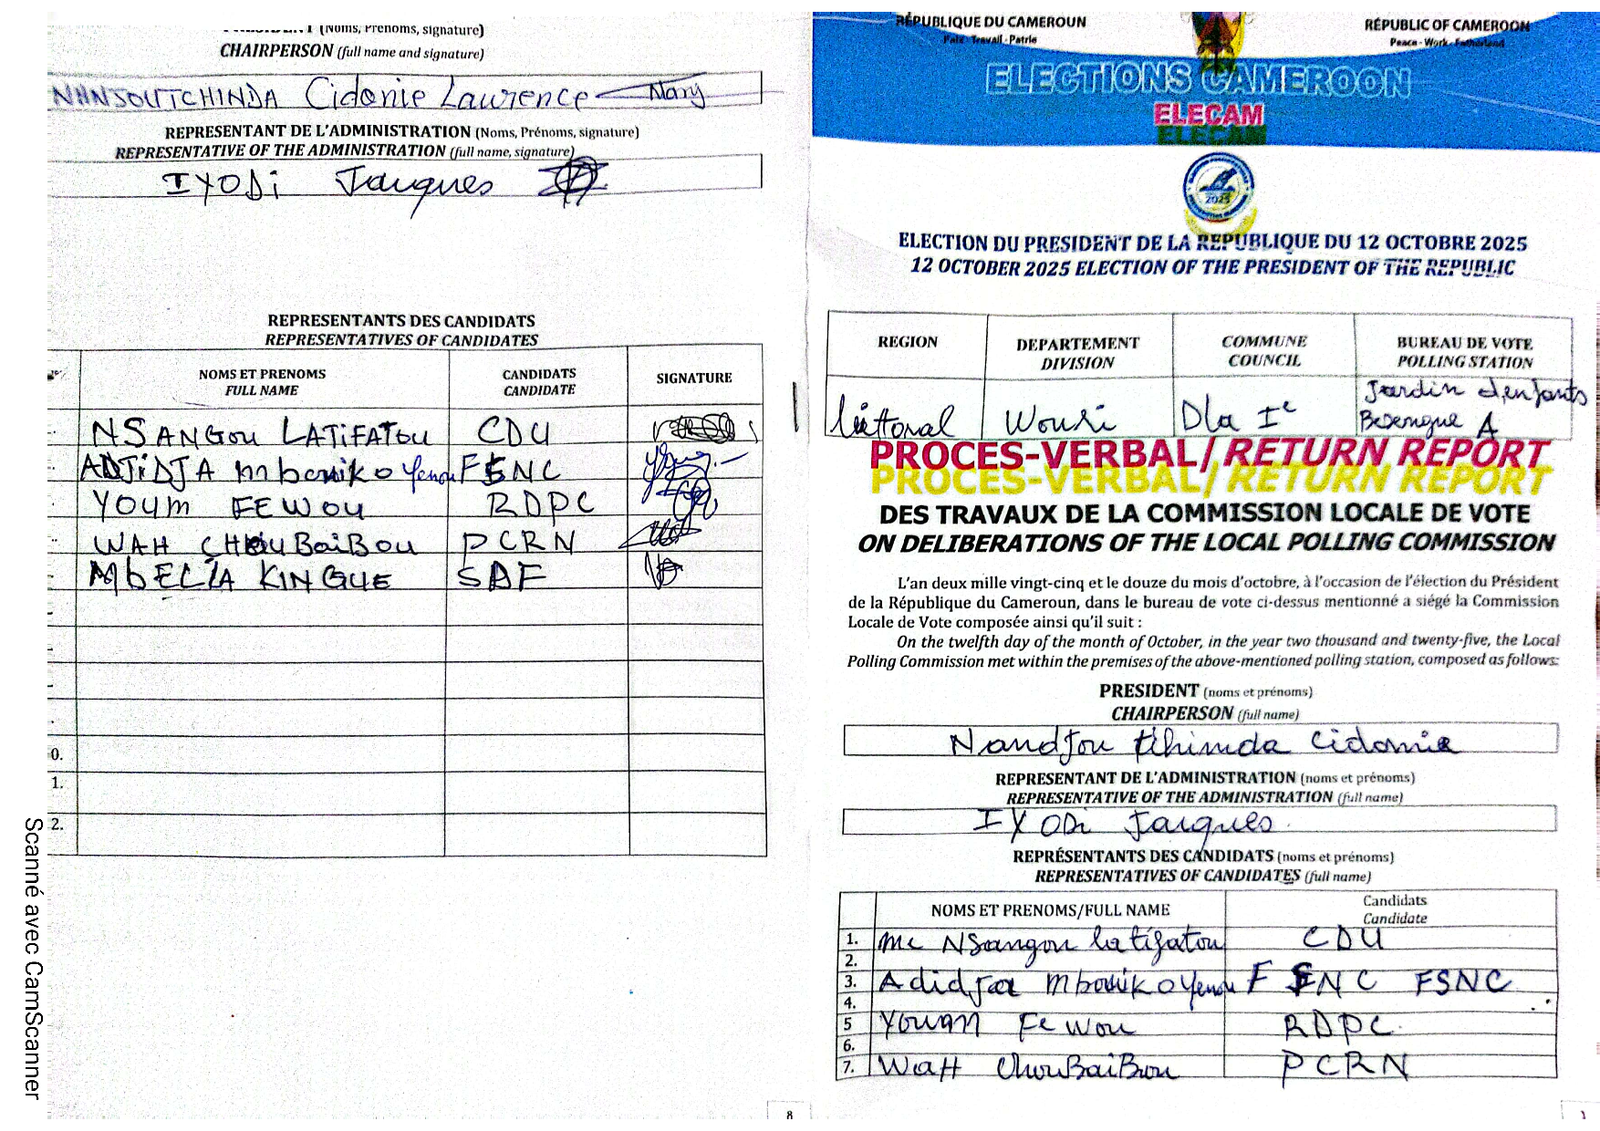 (Noms, Prénoms, signature)
CHAIRPERSON (full name and signature)
Cidonie Laurence
REPRESENTANT DE L'ADMINISTRATION (Noms, Prénoms, signature)
REPRESENTATIVE OF THE ADMINISTRATION (full name, signature)
IYODi Jacques
REPRESENTANTS DES CANDIDATS
REPRESENTATIVES OF CANDIDATES
N° NOMS ET PRENOMS FULL NAME CANDIDATS CANDIDATE SIGNATURE
NSANGOU LATIFATOU CDU
ADJIDJA Mbouiko Yenou FSNC
YOUM FEWOU RDPC
WAH CHOUBAIBOU PCRN
MBELLA KINGUE SDF
0.
1.
2.
8
Scanné avec CamScanner
RÉPUBLIQUE DU CAMEROUN
Paix - Travail - Patrie
RÉPUBLIC OF CAMEROON
Peace - Work - Fatherland
ELECTIONS CAMEROON
ELECAM
2025
ELECTION DU PRESIDENT DE LA REPUBLIQUE DU 12 OCTOBRE 2025
12 OCTOBER 2025 ELECTION OF THE PRESIDENT OF THE REPUBLIC
REGION DEPARTEMENT DIVISION COMMUNE COUNCIL BUREAU DE VOTE POLLING STATION
Littoral Wouri Dla Ie Jardin d'enfants Besengue A
PROCES-VERBAL/ RETURN REPORT
DES TRAVAUX DE LA COMMISSION LOCALE DE VOTE
ON DELIBERATIONS OF THE LOCAL POLLING COMMISSION
L'an deux mille vingt-cinq et le douze du mois d'octobre, à l'occasion de l'élection du Président
de la République du Cameroun, dans le bureau de vote ci-dessus mentionné a siégé la Commission
Locale de Vote composée ainsi qu'il suit :
On the twelfth day of the month of October, in the year two thousand and twenty-five, the Local
Polling Commission met within the premises of the above-mentioned polling station, composed as follows:
PRESIDENT (noms et prénoms)
CHAIRPERSON (full name)
Nandjou Tchinda Cidonie
REPRESENTANT DE L'ADMINISTRATION (noms et prénoms)
REPRESENTATIVE OF THE ADMINISTRATION (full name)
IYODi Jacques
REPRÉSENTANTS DES CANDIDATS (noms et prénoms)
REPRESENTATIVES OF CANDIDATES (full name)
NOMS ET PRENOMS/FULL NAME Candidats Candidate
1. Me NSangou latifatou CDU
2.
3. Adidja Mbouiko Yenou FSNC FSNC
4.
5 Youm Fewou RDPC
6.
7. WaH ChouBaiBou PCRN
1